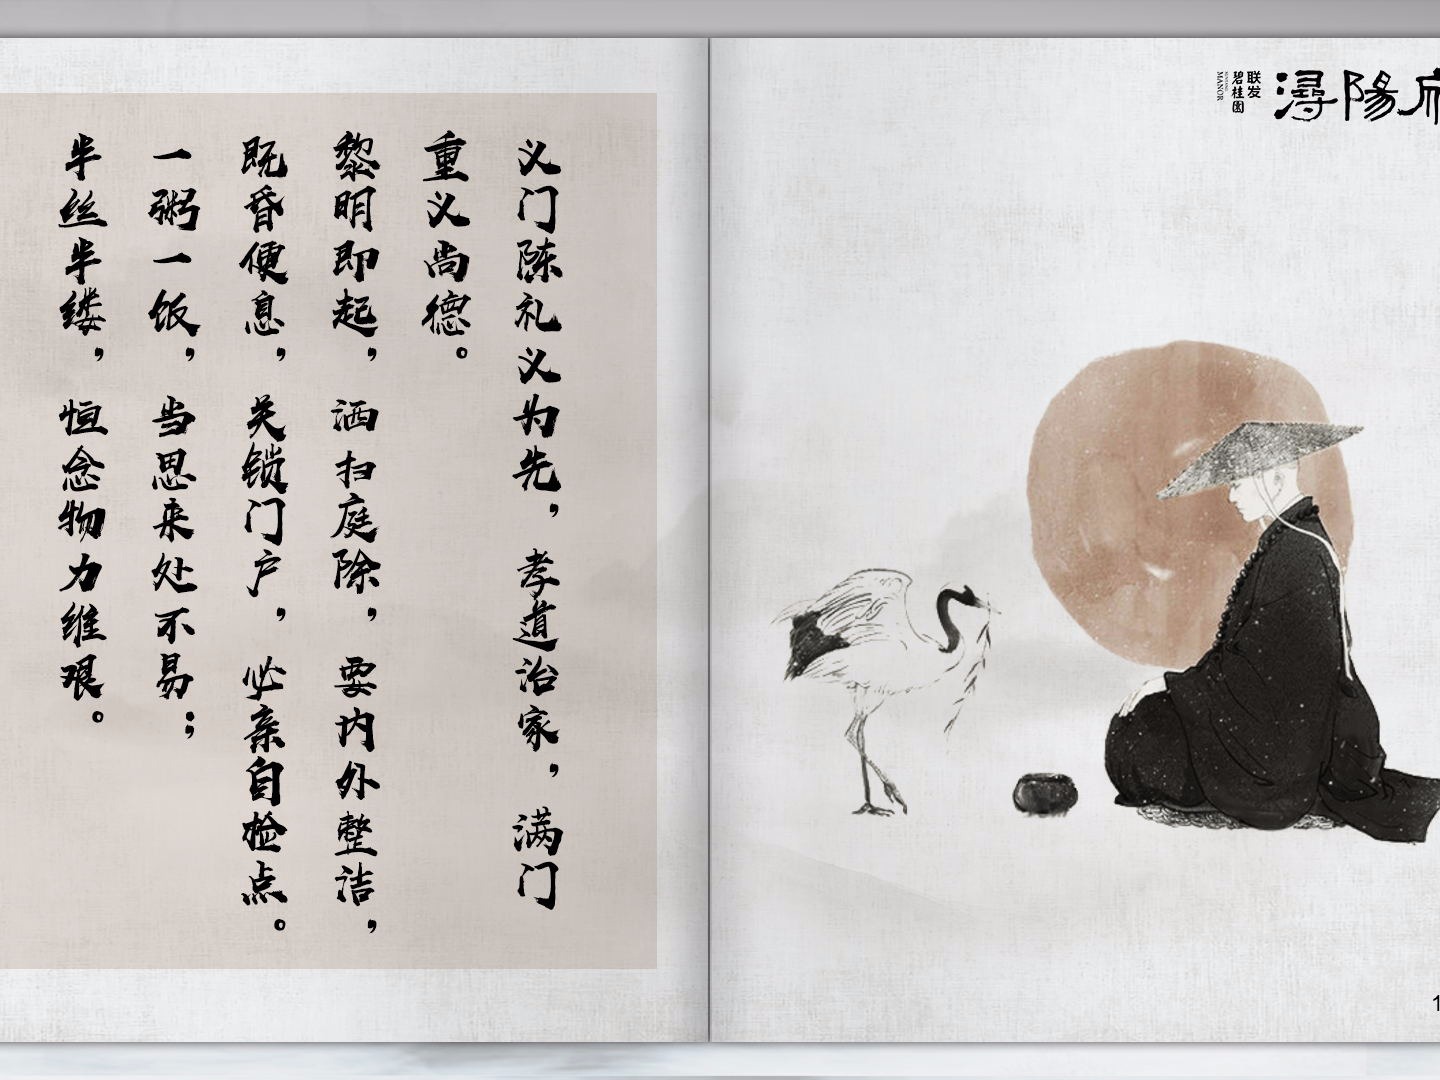 义门陈礼义为先，孝道治家，满门
重义尚德。
黎明即起，洒扫庭除，要内外整洁，
既昏便息，关锁门户，必亲自检点。
一粥一饭，当思来处不易；
半丝半缕，恒念物力维艰。
浔陽府
联发
碧桂園
MANOR
1